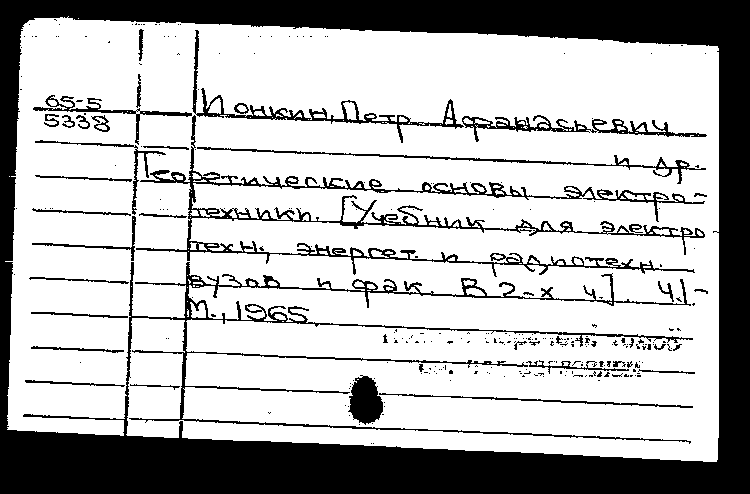 65-5
5338
Ионкин, Петр Афанасьевич
и др.
Теоретические основы электро-
техники. [Учебник для электро-
техн., энергет. и радиотехн.
вузов и фак. В 2-х ч.] Ч.1-
М., 1965.
перечень томов
см. на